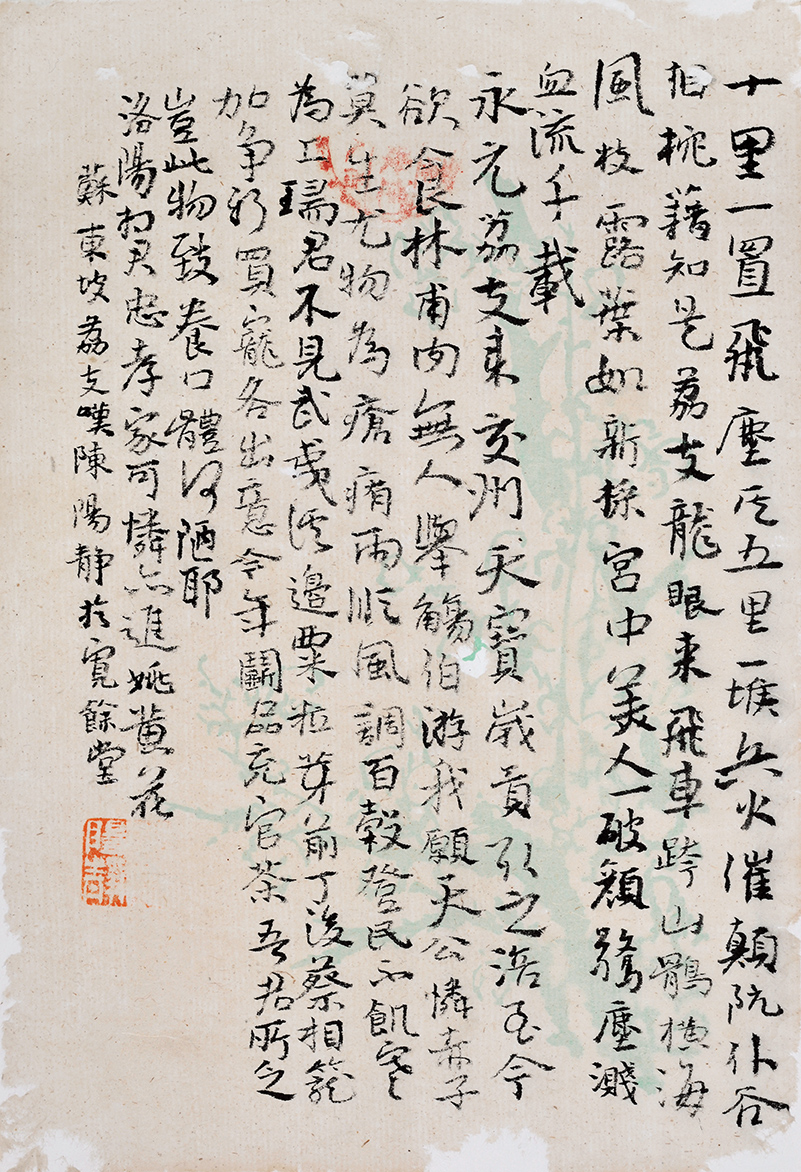 十里一置飛塵灰五里一堠兵火催顛阬仆谷
相枕藉知是荔支龍眼来飛車跨山鶻横海
風枝露葉如新採宮中美人一破顏驚塵濺
血流千載
永元荔支来交州天寶歲貢取之涪至今
欲食林甫肉無人舉觴伯游我願天公憐赤子
莫生尤物為瘡痏雨順風調百穀登民不飢寒
為上瑞君不見武夷溪邊粟粒芽前丁後蔡相籠
加争新買寵各出意今年鬭品充官茶吾君所乏
豈此物致養口體何陋耶
洛陽相君忠孝家可憐亦進姚黄花
蘇東坡荔支嘆陳陽静於寬餘堂